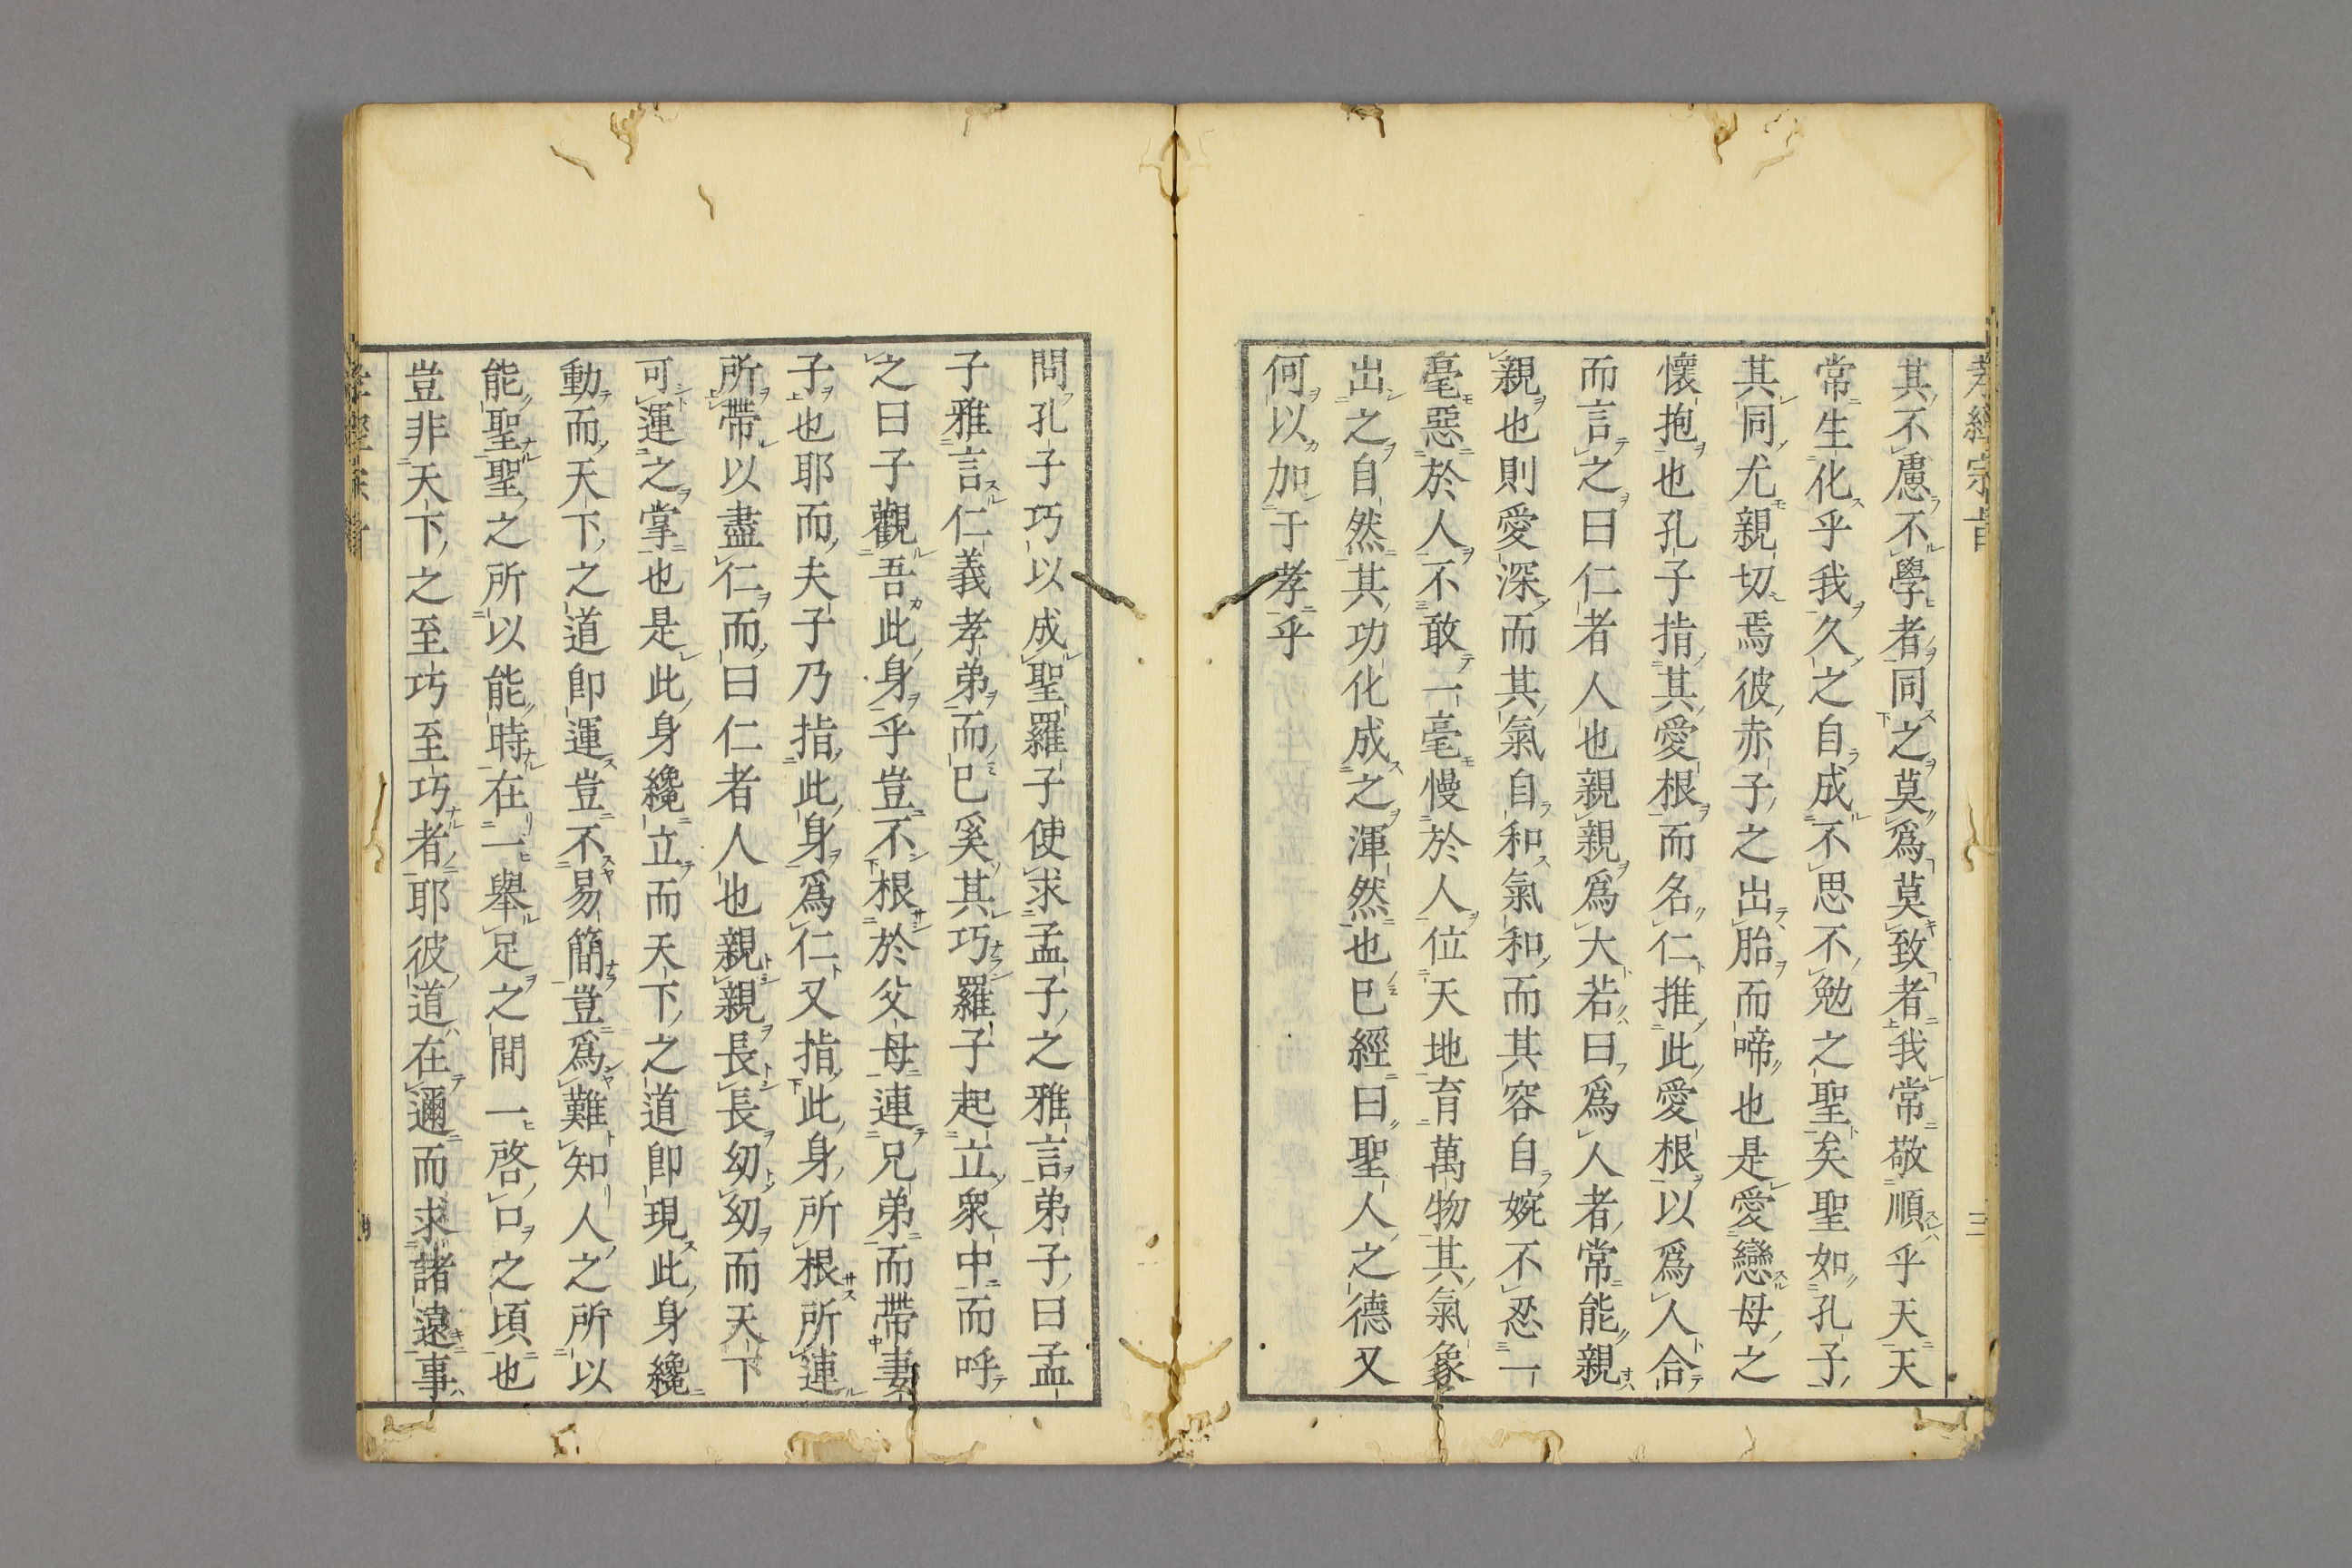 孝經宗旨 三
其不慮不學者同之莫爲莫致者我常敬順乎天天
常生化乎我久之自成不思不勉之聖矣聖如孔子
其同尤親切焉彼赤子之出胎而啼也是愛戀母之
懷抱也孔子指其愛根而名仁推此愛根以爲人合
而言之曰仁者人也親親爲大若曰爲人者常能親
親也則愛深而其氣自和氣和而其容自婉不忍一
毫惡於人不敢一毫慢於人位天地育萬物其氣象
出之自然其功化成之渾然也已經曰聖人之德又
何以加于孝乎
問孔子巧以成聖羅子使求孟子之雅言弟子曰孟
子雅言仁義孝弟而已奚其巧羅子起立衆中而呼
之曰子觀吾此身乎豈不根於父母連兄弟而帶妻
子也耶而夫子乃指此身爲仁又指此身所根所連
所帶以盡仁而曰仁者人也親親長長幼幼而天下
可運之掌也是此身纔立而天下之道卽現此身纔
動而天下之道卽運豈不易簡豈爲難知人之所以
能聖聖之所以能時在一舉足之間一啓口之頃也
豈非天下之至巧至巧者耶彼道在邇而求諸遠事